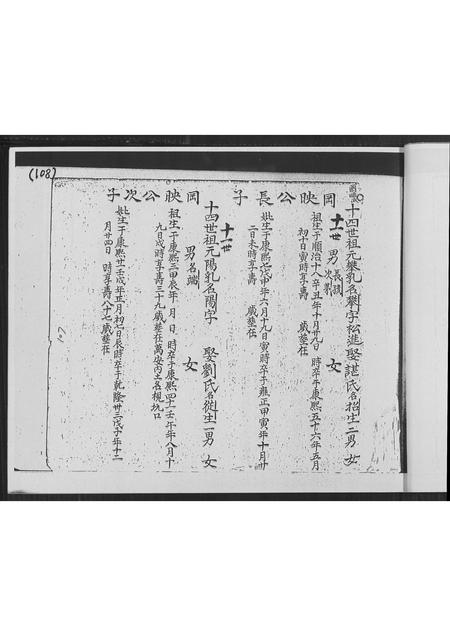 (108)
岡映公長子
十四世祖元攀乳名攀字松進娶諶氏名招生二男 女
十一世 男長議 次業 女
祖生于順治十八辛丑年十月廿九日 時卒于康熙五十六年五月
初十日寅時享壽 歲塟在
妣生于康熙 申年六月十九日寅時卒于雍正甲寅年十月廿
二日未時享壽 歲塟在
岡映公次子
十四世祖元陽乳名陽字 娶劉氏名從生一男 女
十一世 男名端 女
祖生于康熙三甲辰年 月 日 時卒于康熙四十一壬午年八月十
九日戌時享壽三十九歲塟在萬安內土名梘坑口
妣生于康熙廿一壬戌年正月初七日辰時卒于乾隆卅三戊子年十二
月廿四日 時享壽八十七歲塟在
107